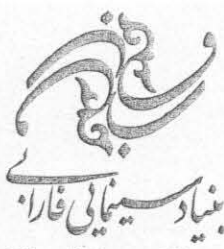 بنیاد سینمایی فارابی